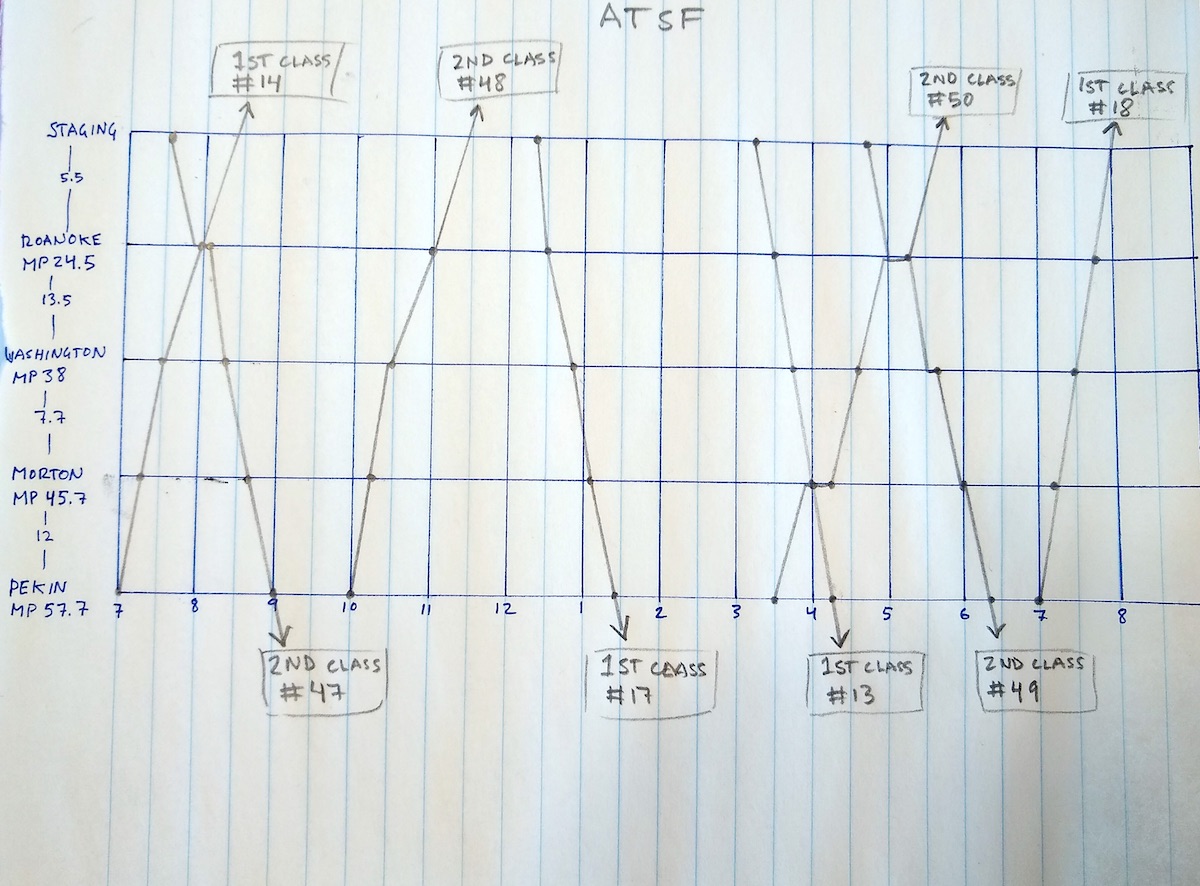 ATSF
1ST CLASS
#14
2ND CLASS
#48
2ND CLASS
#50
1ST CLASS
#18
STAGING
5.5
ROANOKE
MP 24.5
13.5
WASHINGTON
MP 38
7.7
MORTON
MP 45.7
12
PEKIN
MP 57.7
7 8 9 10 11 12 1 2 3 4 5 6 7 8
2ND CLASS
#47
1ST CLASS
#17
1ST CLASS
#13
2ND CLASS
#49